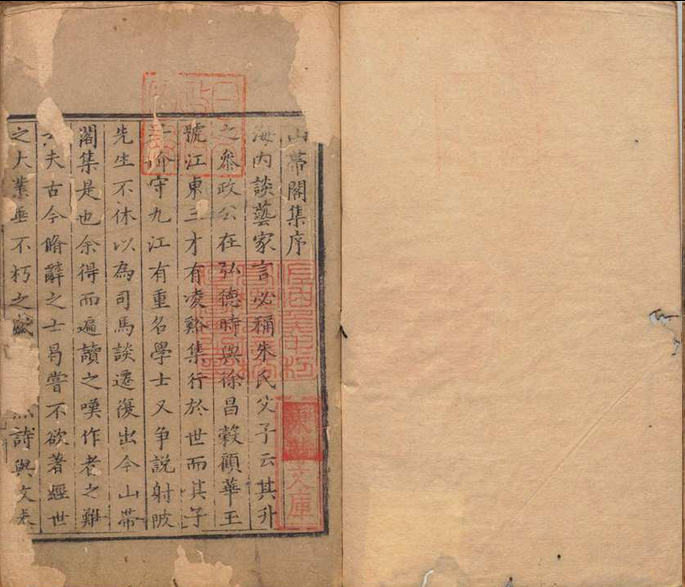 山帶閣集序
海內談藝家言必稱朱氏父子云其升
之參政公在弘德時與徐昌穀顧華玉
號江東三才有凌谿集行於世而其子
价守九江有重名學士又爭說射陂
先生不休以為司馬談遷復出今山帶
閣集是也余得而遍讀之嘆作者之難
夫古今脩辭之士曷嘗不欲著經世
之大業垂不朽之盛 詩與文未
文庫